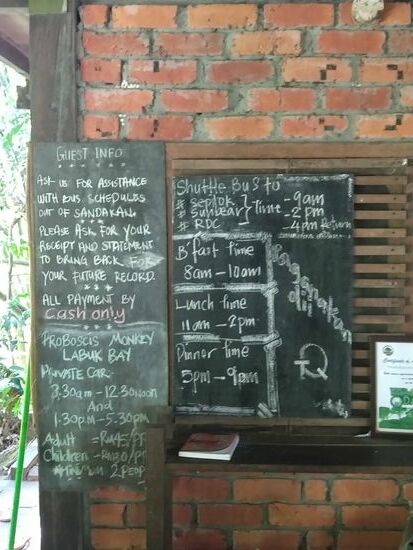 GUEST INFO
ASK US FOR ASSISTANCE
WITH BUS SCHEDULES
OUT OF SANDAKAN.
PLEASE ASK FOR YOUR
RECEIPT AND STATEMENT
TO BRING BACK FOR
YOUR FUTURE RECORD.
ALL PAYMENT BY
Cash only
PROBOSCIS MONKEY
LABUK BAY
PRIVATE CAR:
And
1.30pm - 5.30pm
Adult = RM45/PP
Children = RM30/PP
2 PEOP
Shuttle Bus to
# Sepilok
# Sunbear
# RDC
Time
- 9am
- 2pm
- 4pm Return
B'fast time
8am - 10am
Lunch time
11am - 2pm
Dinner time
5pm - 9am
Paganakan
dii